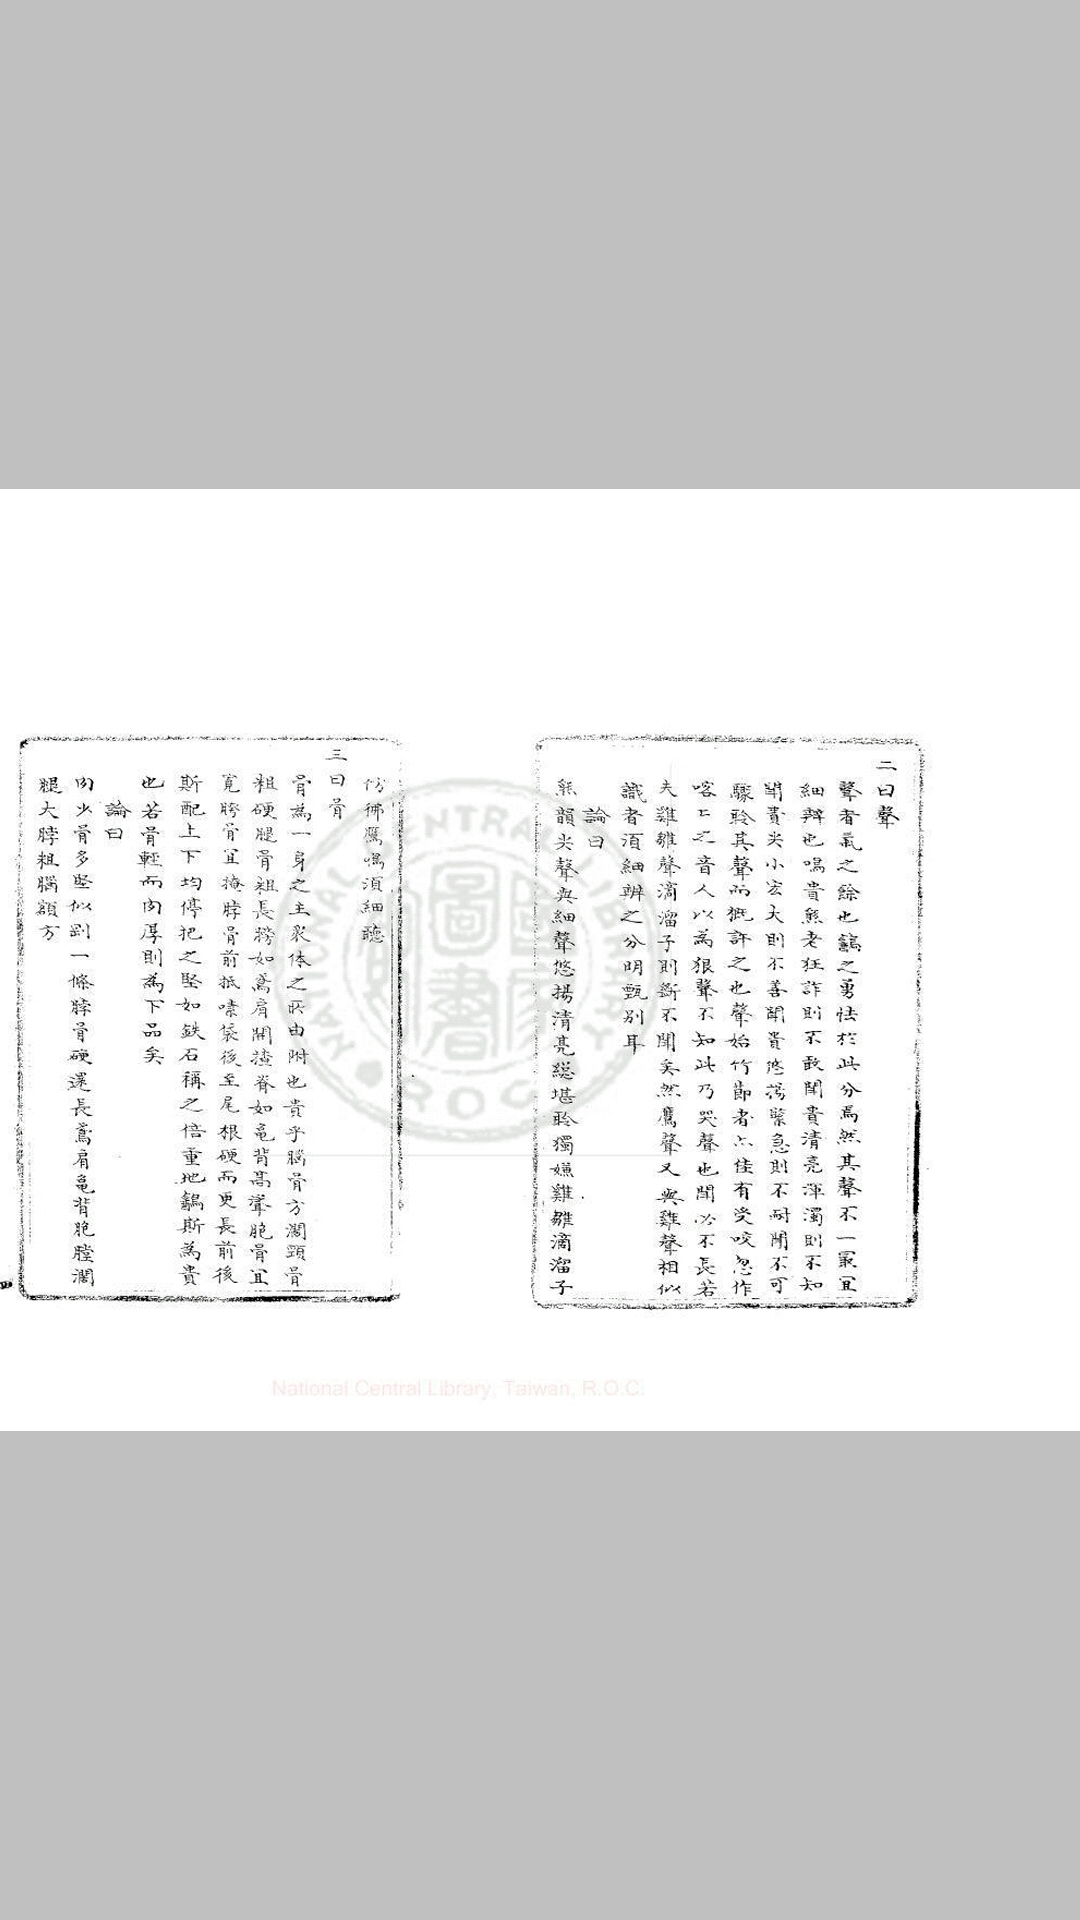 二曰聲
聲者氣之餘也鷂之勇怯於此分焉然其聲不一最宜
細辨也鳴貴熊老狂詐則不敢聞貴清亮渾濁則不知
聞貴尖小宏大則不善聞貴悠揚緊急則不耐聞不可
驟聆其聲而概許之也聲始竹節者亦佳有受咬忽作
喀之音人以為狠聲不知此乃哭聲也聞必不長若
夫雞雛聲滴溜子則斷不聞矣然鷹聲又與雞聲相似
識者須細辨之分明甄别耳
論曰
熊韻尖聲與細聲悠揚清亮総堪聆獨嫌雞雛滴溜子
仿彿鷹鳴須細聽
三曰骨
骨為一身之主衆体之所由附也貴乎腦骨方濶頸骨
粗硬腿骨粗長膀如鳶肩開揸脊如龜背高聳胞骨宜
寛胯骨宜掩脖骨前抵嗉袋後至尾根硬而更長前後
斯配上下均停把之堅如鉄石稱之倍重地鷂斯為貴
也若骨輕而肉厚則為下品矣
論曰
肉少骨多堅似剛一條脖骨硬還長鳶肩龜背胞膛濶
腿大脖粗腦額方
National Central Library, Taiwan, R.O.C.